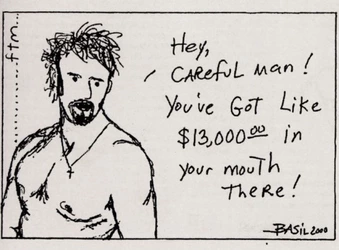 ftm...
Hey,
CAREFUL MAN!
You've Got Like
$13,000.00 in
your mouth
THERE!
—BASIL 2000